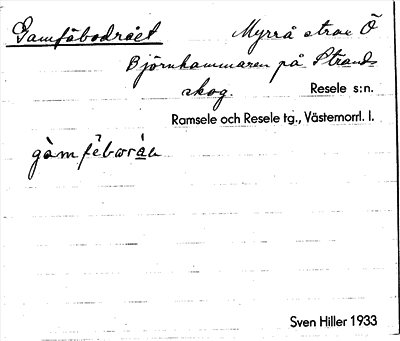 Gamfäbodrået Myrrå strax Ö
Björnhammaren på Strands
skog. Resele s:n.
Ramsele och Resele tg., Västernorrl. l.
gàm fȇbωrá̲a
Sven Hiller 1933